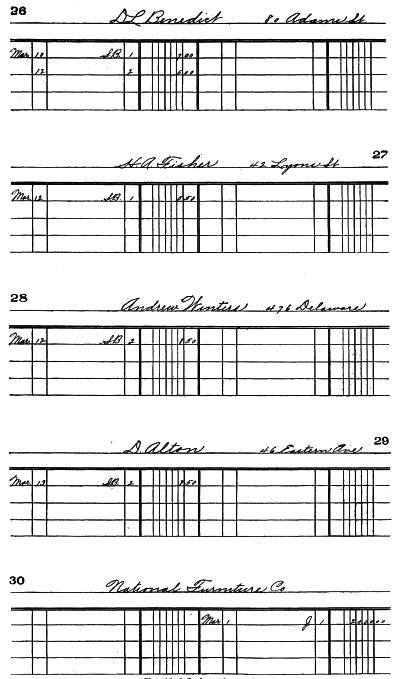 26 D L Benedict 80 Adams St.
Mar. 10 S.B. 1
12 2 5.00
27
H. A. Fisher 42 Lyons St
Mar. 12 S.B. 1 5.50
28
Andrew Winters 476 Delaware
Mar. 12 S.B. 2 8.50
29
D. Alton 46 Eastern Ave
Mar. 13 S.B. 2 8.50
30
National Furniture Co
Mar 1 J 1 200000